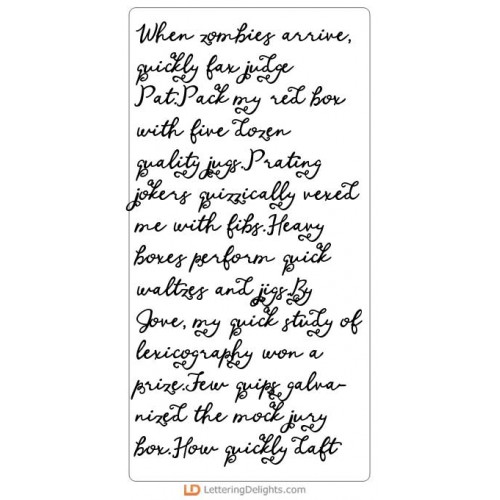 When zombies arrive,
quickly fax judge
Pat.Pack my red box
with five dozen
quality jugs.Prating
jokers quizzically vexed
me with fibs.Heavy
boxes perform quick
waltzes and jigs.By
Jove, my quick study of
lexicography won a
prize.Few quips galva-
nized the mock jury
box.How quickly daft
LD LetteringDelights.com